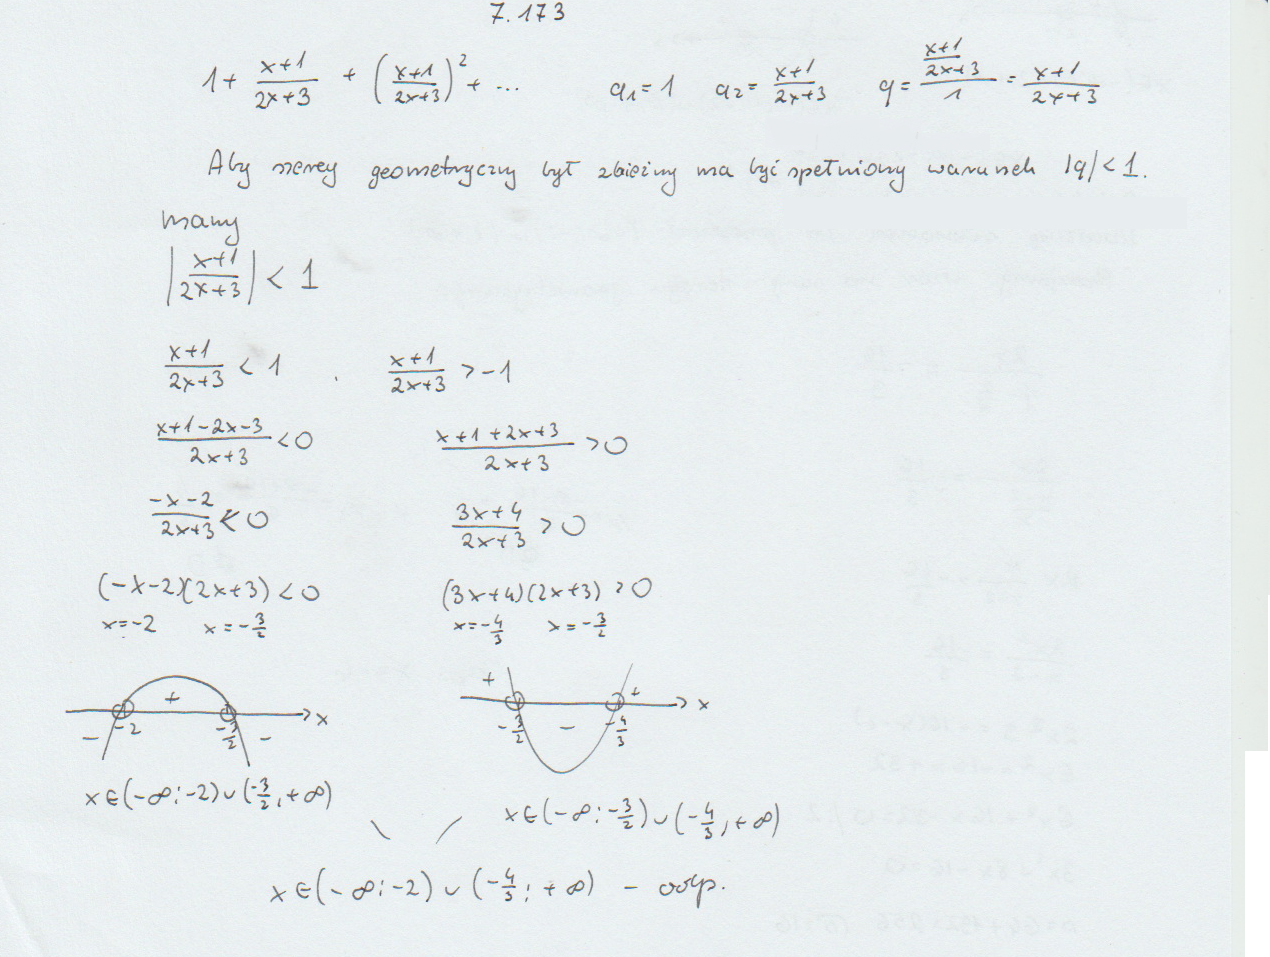 7.173
1 + \frac{x+1}{2x+3} + \left(\frac{x+1}{2x+3}\right)^2 + ... a_1 = 1 a_2 = \frac{x+1}{2x+3} q = \frac{\frac{x+1}{2x+3}}{1} = \frac{x+1}{2x+3}
Aby szereg geometryczny był zbieżny ma być spełniony warunek |q| < 1.
mamy
\left|\frac{x+1}{2x+3}\right| < 1
\frac{x+1}{2x+3} < 1 . \frac{x+1}{2x+3} > -1
\frac{x+1-2x-3}{2x+3} < 0 \frac{x+1+2x+3}{2x+3} > 0
\frac{-x-2}{2x+3} < 0 \frac{3x+4}{2x+3} > 0
(-x-2)(2x+3) < 0 (3x+4)(2x+3) > 0
x=-2 x=-\frac{3}{2} x=-\frac{4}{3} x=-\frac{3}{2}
+ + +
x x
- -2 -\frac{3}{2} - -\frac{3}{2} - -\frac{4}{3}
x∈(-∞;-2)∪(-\frac{3}{2},+∞) x∈(-∞;-\frac{3}{2})∪(-\frac{4}{3},+∞)
x∈(-∞;-2)∪(-\frac{4}{3};+∞) - odp.